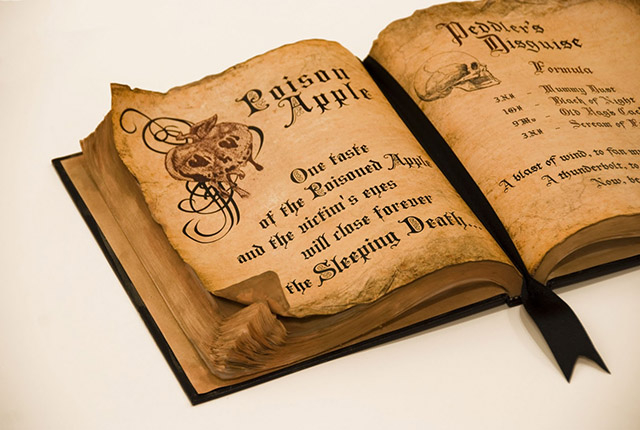 Poison
Apple
One taste
of the Poisoned Apple
and the victim's eyes
will close forever
the Sleeping Death...
Peddler's
Disguise
Formula
Mummy Dust
Black of Night
Old Hag's
Scream of
A blast of wind, to fan
A thunderbolt, to
Now, be